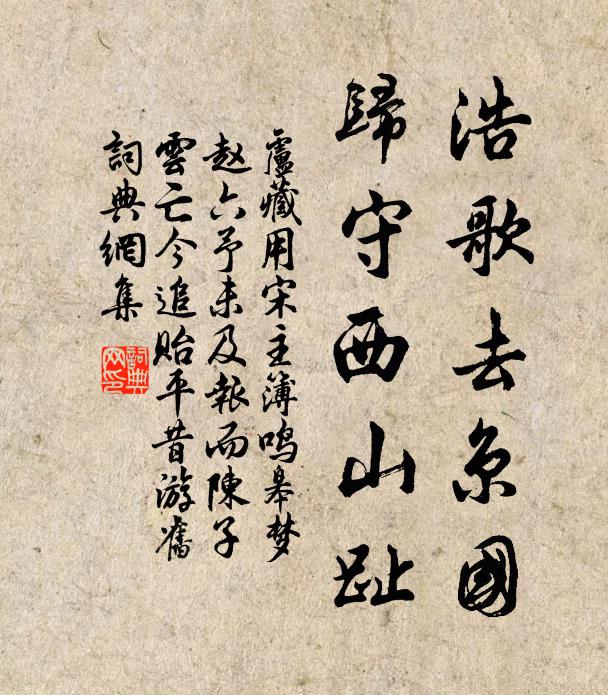 浩歌去京國
歸守西山趾
盧藏用宋主簿鳴皋梦
赵六予未及報而陳子
雲亡今追貽平昔游舊
詞典網集
詞典
网印